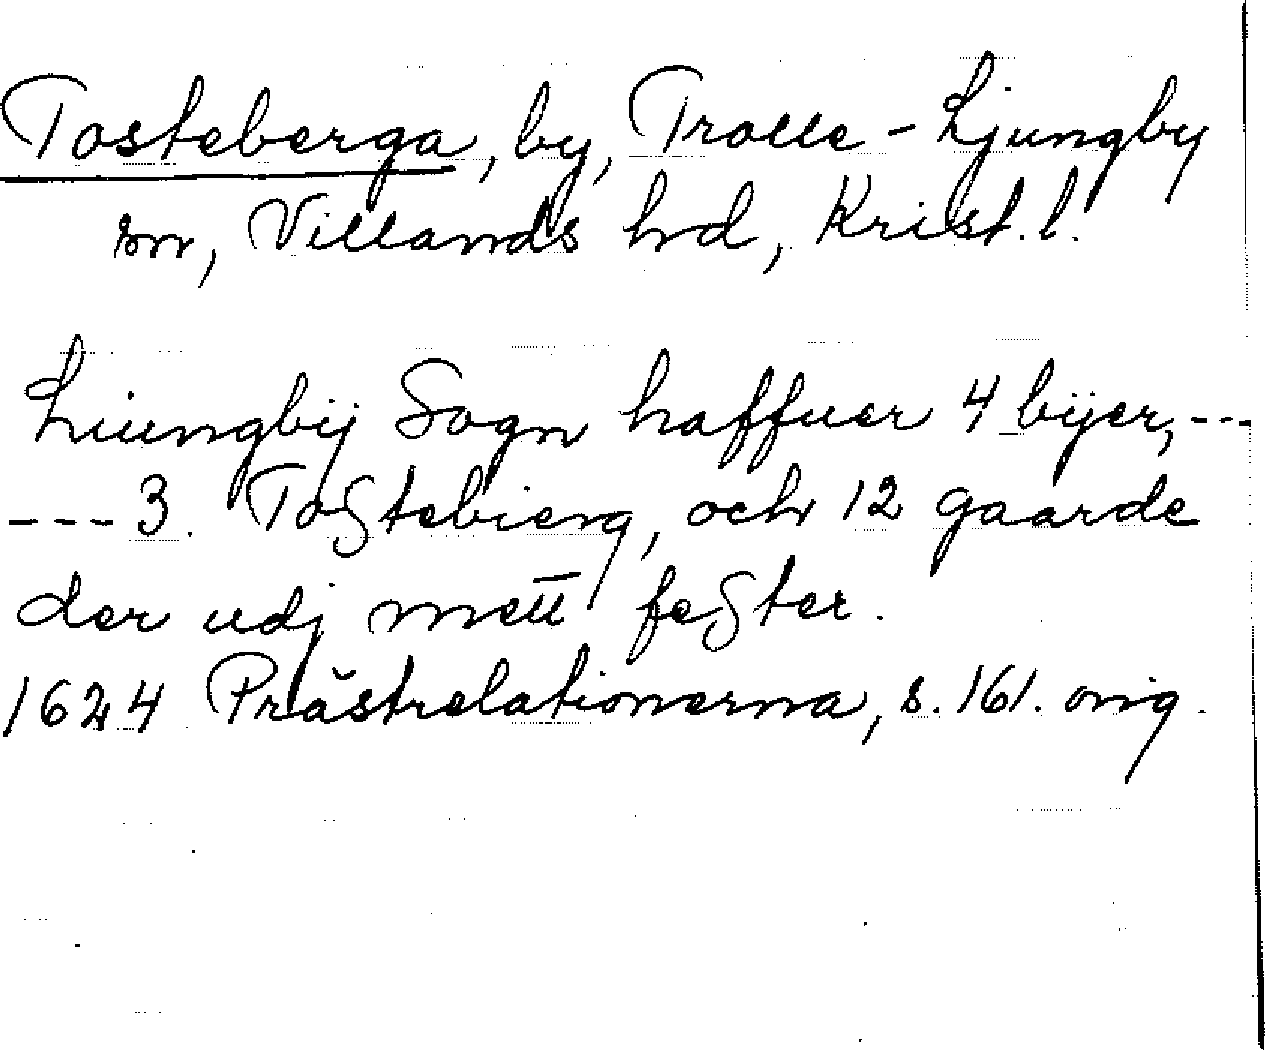 Tosteberga, by, Trolle-Ljungby
sn, Villands hd, Krist. l.
Liungbÿ Sogn haffuer 4 bÿer, ---
--- 3. Toßtebierg, och 12 gaarde
der udj mett feßter.
1624 Prästrelationerna, s. 161. orig.